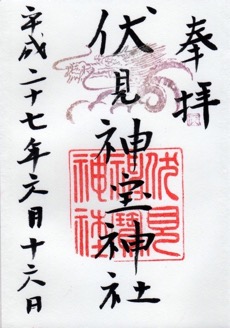 奉拝
伏見神宝神社
平成二十七年六月十六日
伏見
神寳
神社